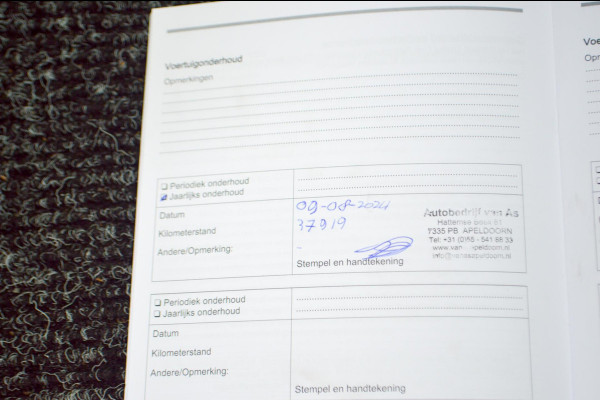 Voertuigonderhoud
Opmerkingen
Voe
Opr
Periodiek onderhoud
Jaarlijks onderhoud
Datum
09-08-2024
Kilometerstand
37919
Andere/Opmerking:
-
Stempel en handtekening
Autobedrijf van As
7335 PB APELDOORN
Tel: +31 (0)55 - 541 66 33
www.van
peldoorn.nl
Periodiek onderhoud
Jaarlijks onderhoud
Datum
Kilometerstand
Andere/Opmerking:
Stempel en handtekening